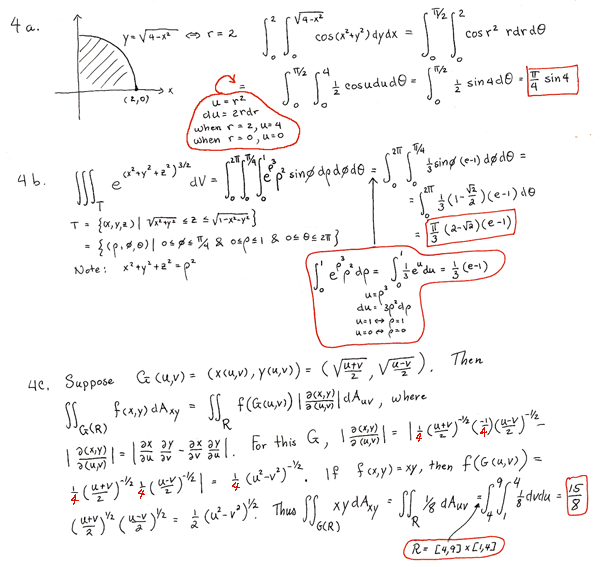 4a. y = √(4-x²) ⇔ r = 2 ∫₀² ∫₀^√(4-x²) cos(x²+y²) dy dx = ∫₀^π/2 ∫₀² cos r² r dr dθ
x
(2,0)
= ∫₀^π/2 ∫₀⁴ ½ cos u du dθ = ∫₀^π/2 ½ sin 4 dθ = π/4 sin 4
u = r²
du = 2rdr
when r = 2, u = 4
when r = 0, u = 0
4b. ∭_T e^(x²+y²+z²)^3/2 dV = ∫₀^2π ∫₀^π/4 ∫₀¹ e^ρ³ ρ² sinφ dρ dφ dθ = ∫₀^2π ∫₀^π/4 ⅓ sinφ (e-1) dφ dθ =
T = {(x,y,z) | √(x²+y²) ≤ z ≤ √(1-x²-y²)}
= ∫₀^2π ⅓ (1-√2/2)(e-1) dθ
= {(ρ,φ,θ) | 0 ≤ φ ≤ π/4 & 0 ≤ ρ ≤ 1 & 0 ≤ θ ≤ 2π}
= π/3 (2-√2)(e-1)
Note: x²+y²+z² = ρ²
∫₀¹ e^ρ³ ρ² dρ = ∫₀¹ ⅓ e^u du = ⅓ (e-1)
u = ρ³
du = 3ρ² dρ
u=1 ⇔ ρ=1
u=0 ⇔ ρ=0
4c. Suppose G(u,v) = (x(u,v), y(u,v)) = (√((u+v)/2), √((u-v)/2)). Then
∬_G(R) f(x,y) dA_xy = ∬_R f(G(u,v)) |∂(x,y)/∂(u,v)| dA_uv, where
|∂(x,y)/∂(u,v)| = |∂x/∂u ∂y/∂v - ∂x/∂v ∂y/∂u|. For this G, |∂(x,y)/∂(u,v)| = |¼ ((u+v)/2)^-1/2 (-1/4) ((u-v)/2)^-1/2 -
¼ ((u+v)/2)^-1/2 ¼ ((u-v)/2)^-1/2| = ¼ (u²-v²)^-1/2. If f(x,y) = xy, then f(G(u,v)) =
((u+v)/2)^1/2 ((u-v)/2)^1/2 = ½ (u²-v²)^1/2. Thus ∬_G(R) xy dA_xy = ∬_R 1/8 dA_uv = ∫₄⁹ ∫₁⁴ ⅛ dv du = 15/8
R = [4,9] x [1,4]